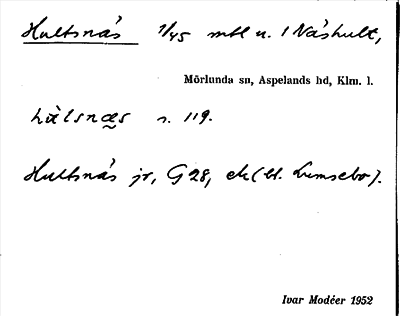 Hultsnäs 1/45 mtl u. 1 Näshult,
Mörlunda sn, Aspelands hd, Klm. l.
hùlsnæs s. 119.
Hultsnäs jr, G 28, ek (bl. Lumsebo).
Ivar Modéer 1952